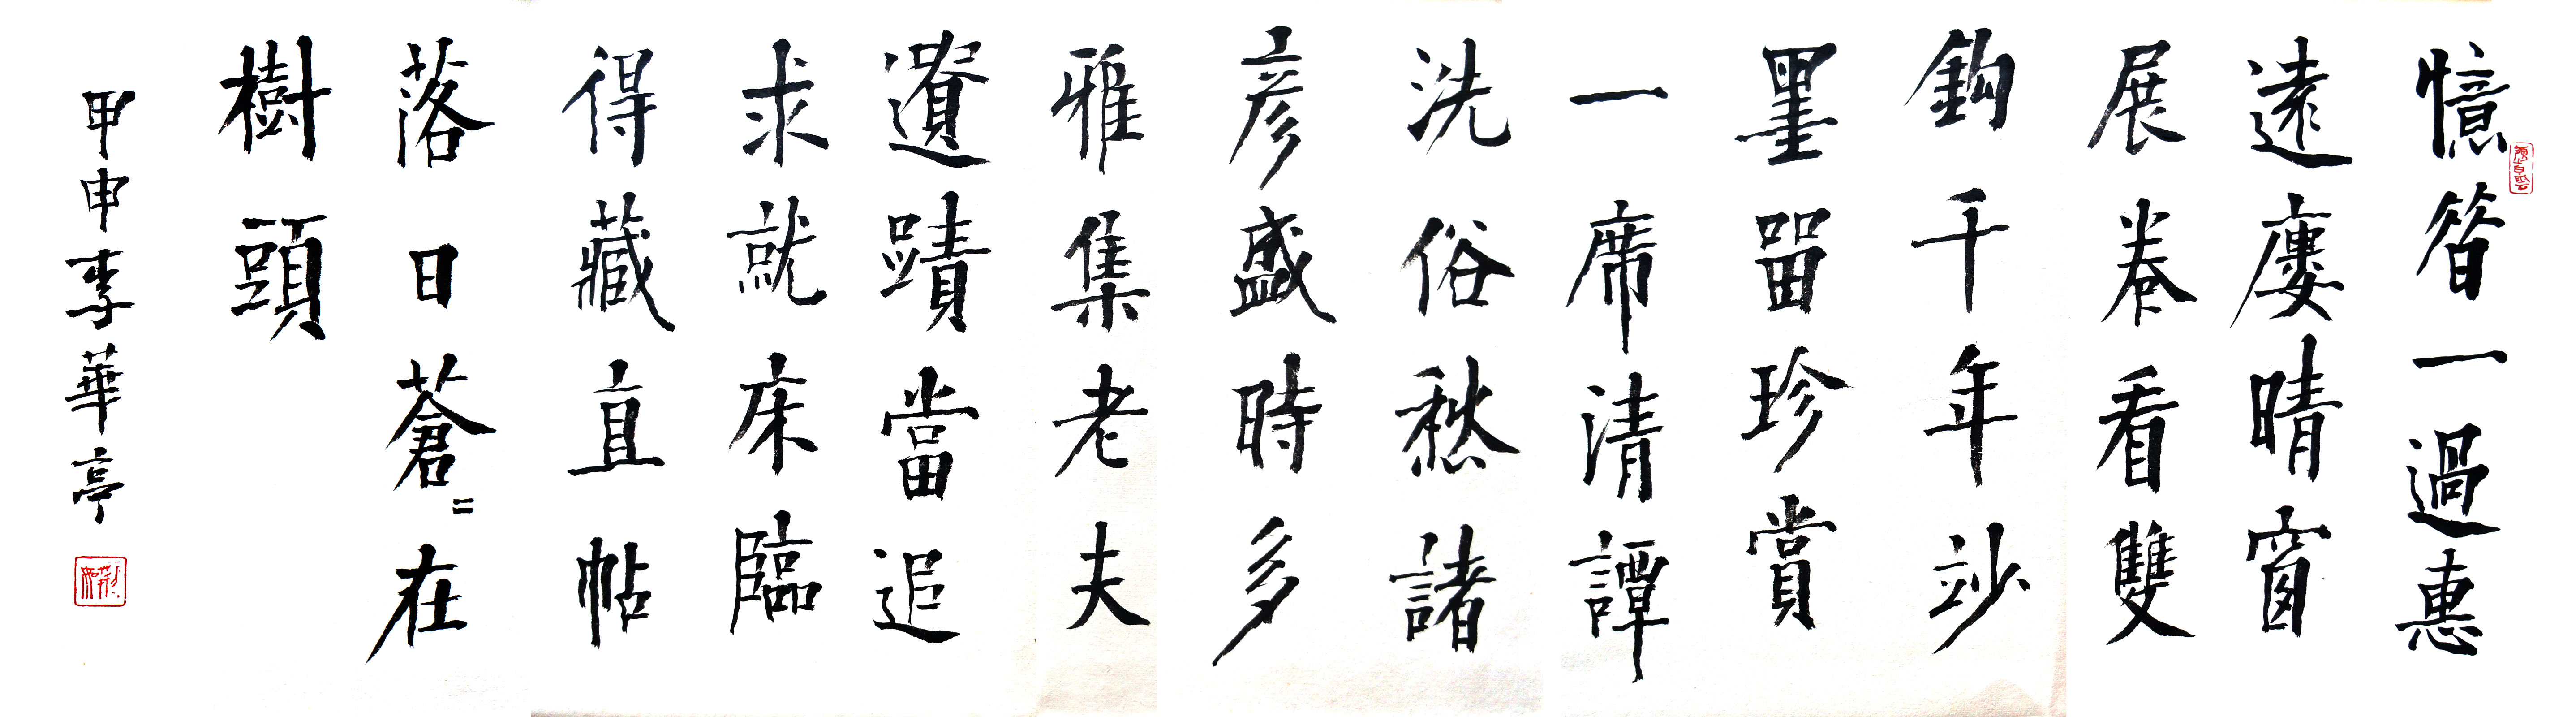 憶簪一過惠
遠廔晴窗
展卷看雙
鉤千年竗
墨留珍賞
一席清譚
洗俗愁諸
彦盛時多
雅集老夫
遺蹟當追
求就床臨
得藏直帖
落日蒼〻在
樹頭
甲申李華亭